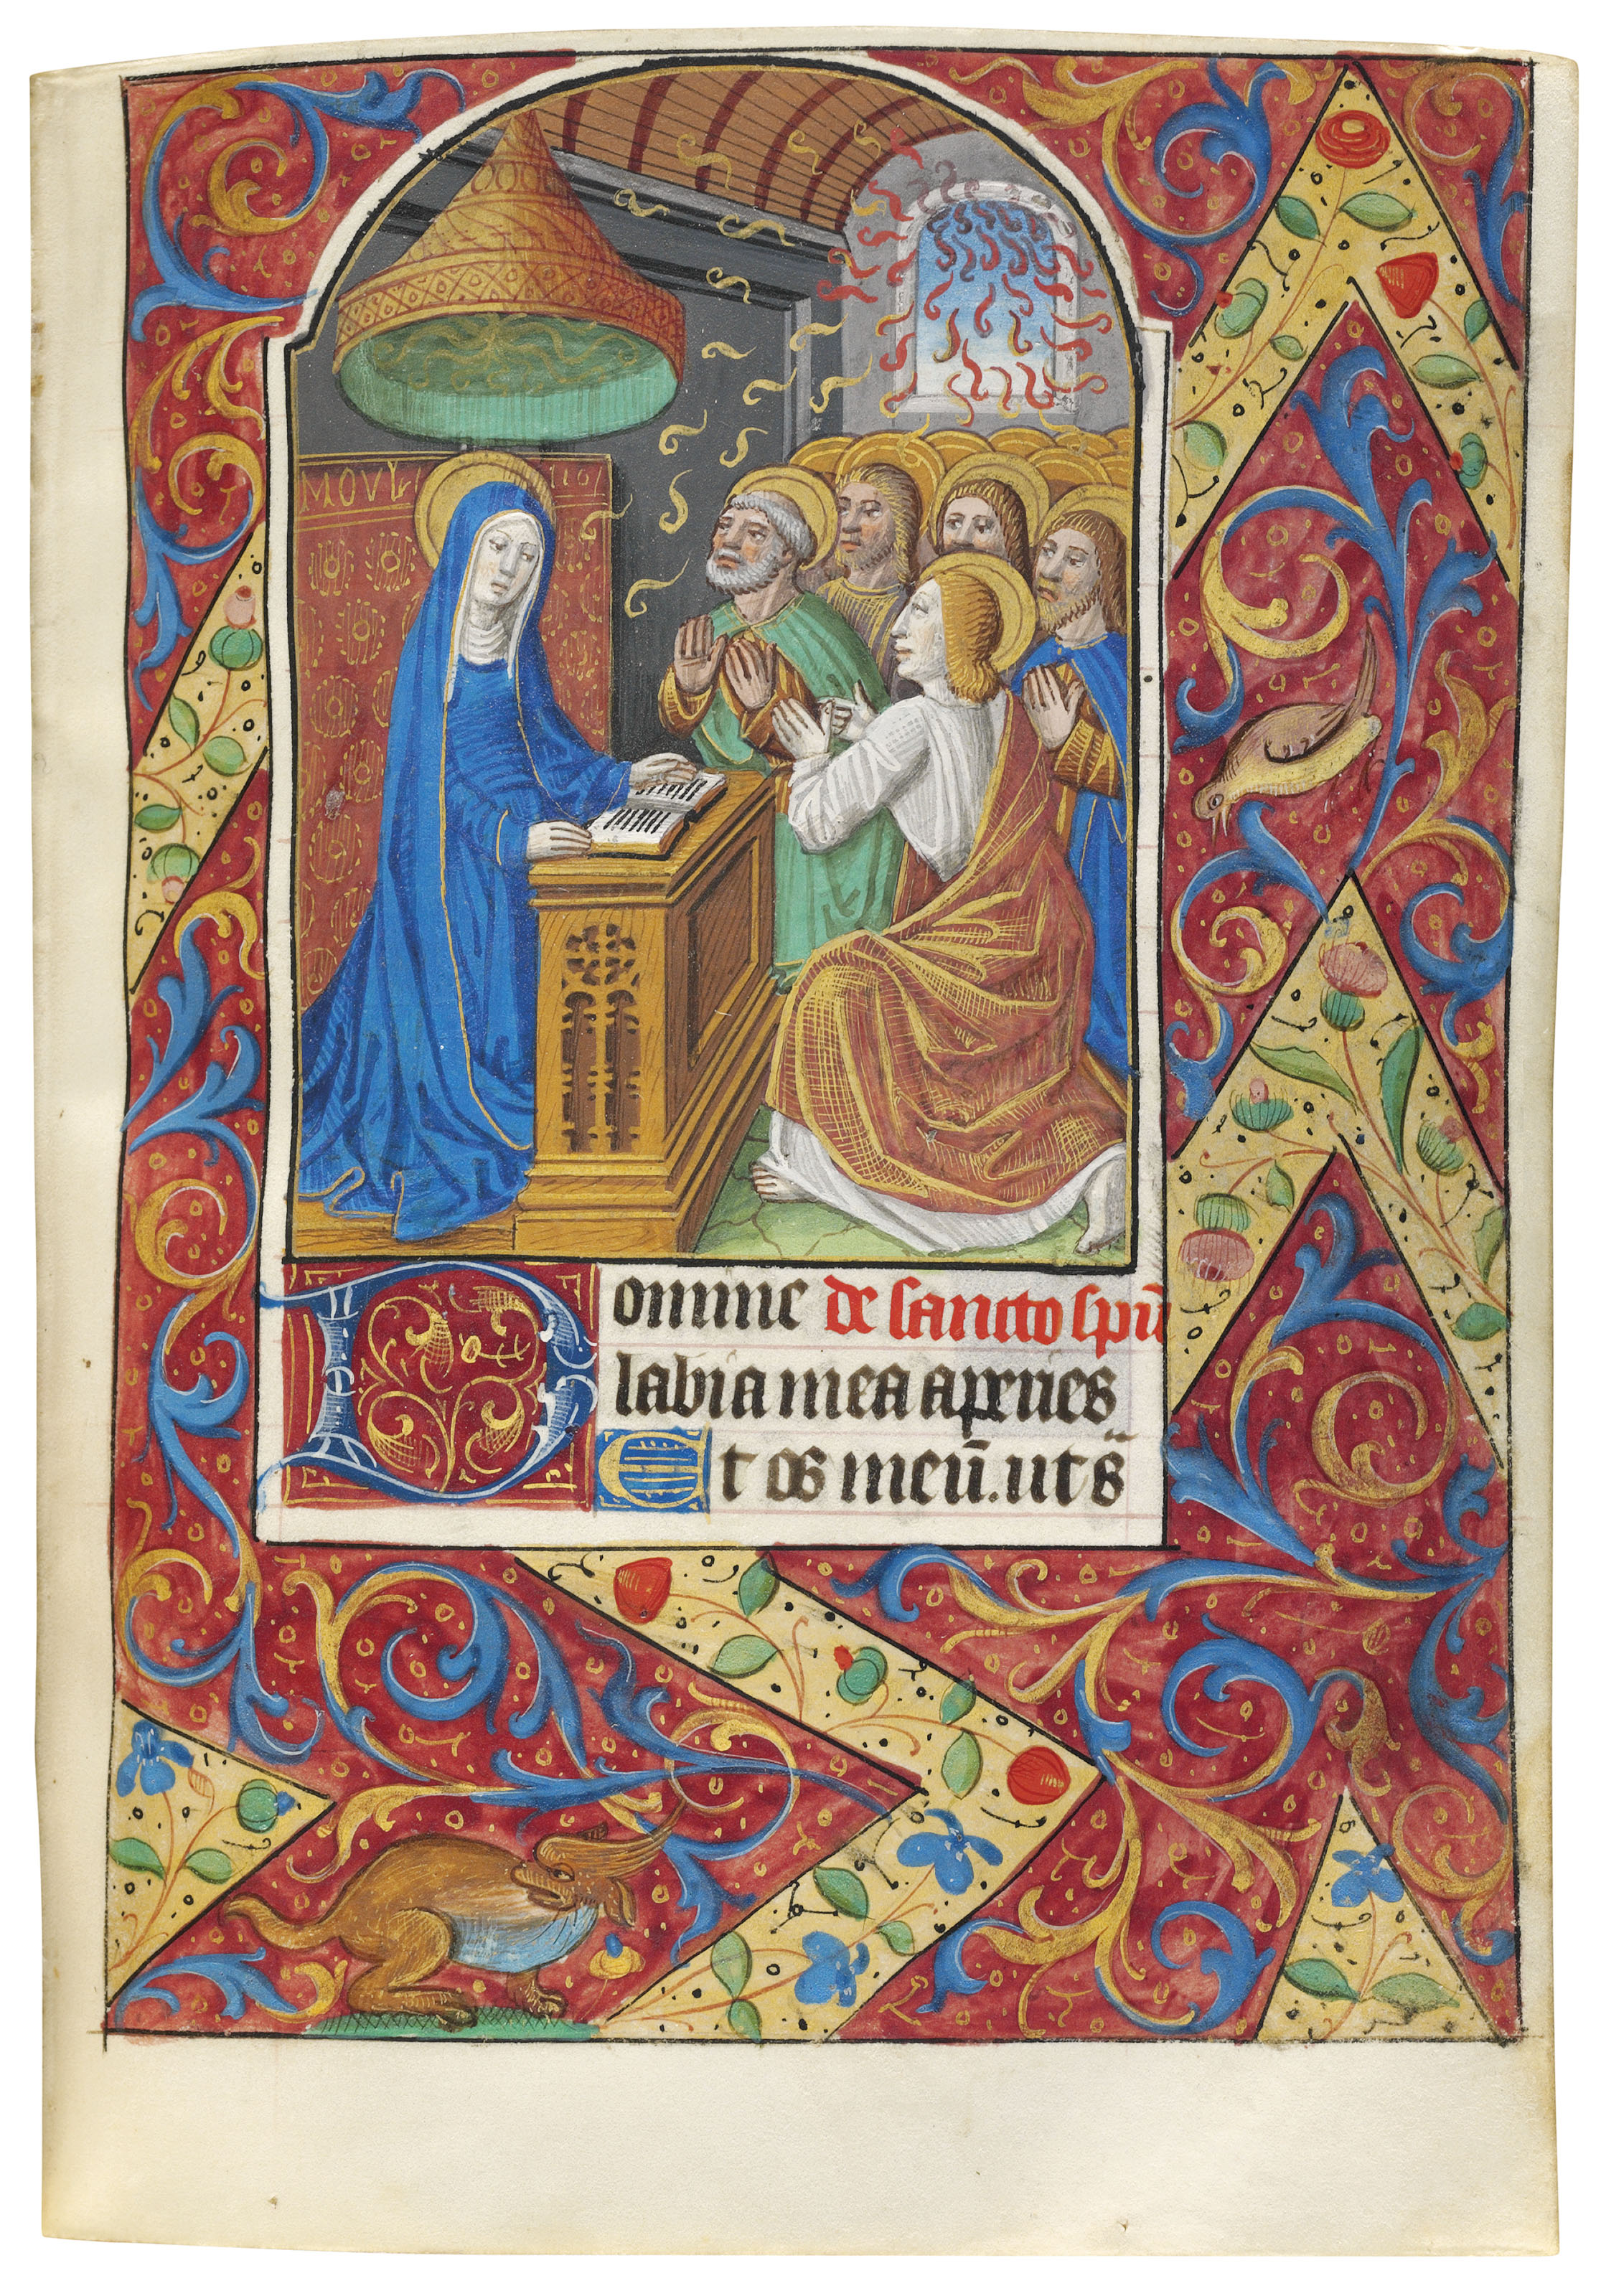 MOVL
Domine de sancto spũ
labia mea aperies
Et os meū. ut s̃